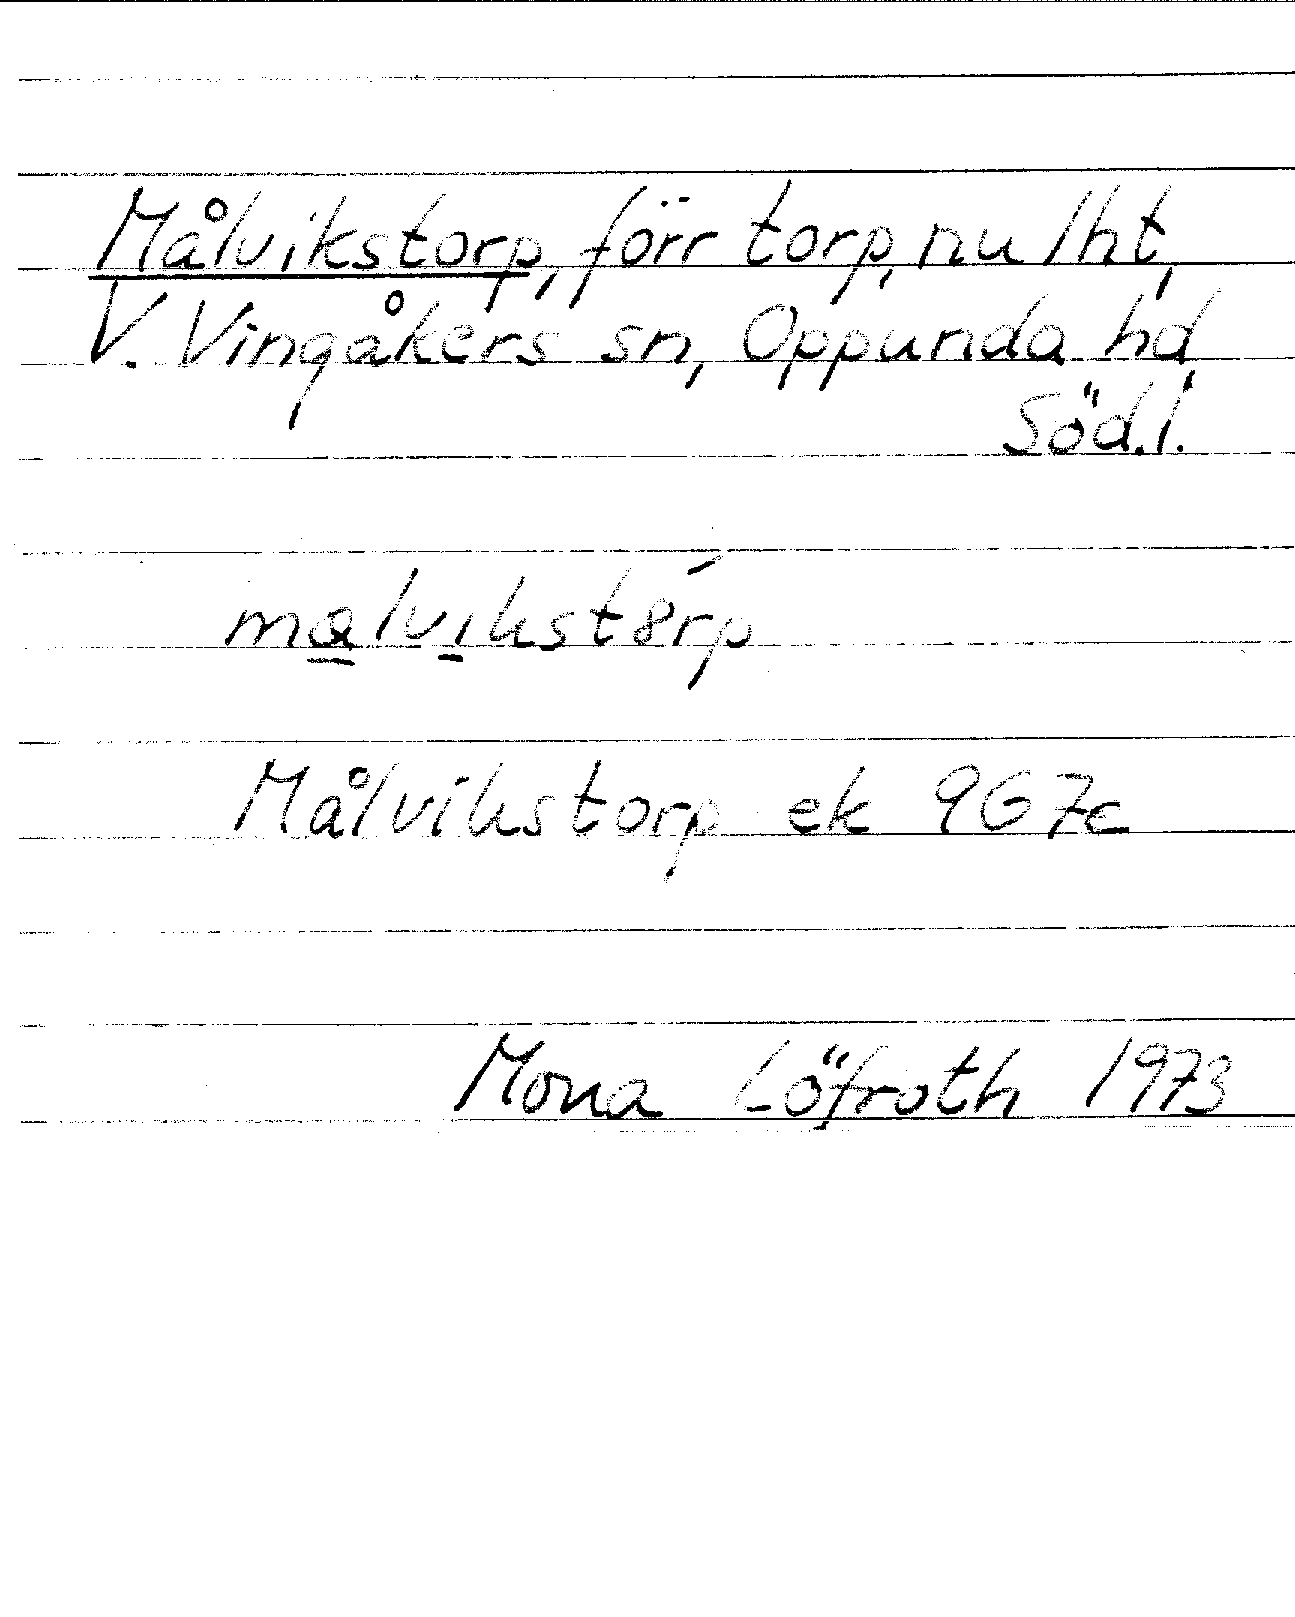 Målvikstorp, förr torp, nu lht,
V. Vingåkers sn, Oppunda hd,
Söd.l.
målvikstȣ́rp
Målvikstorp ek 9G7c
Mona Löfroth 1973